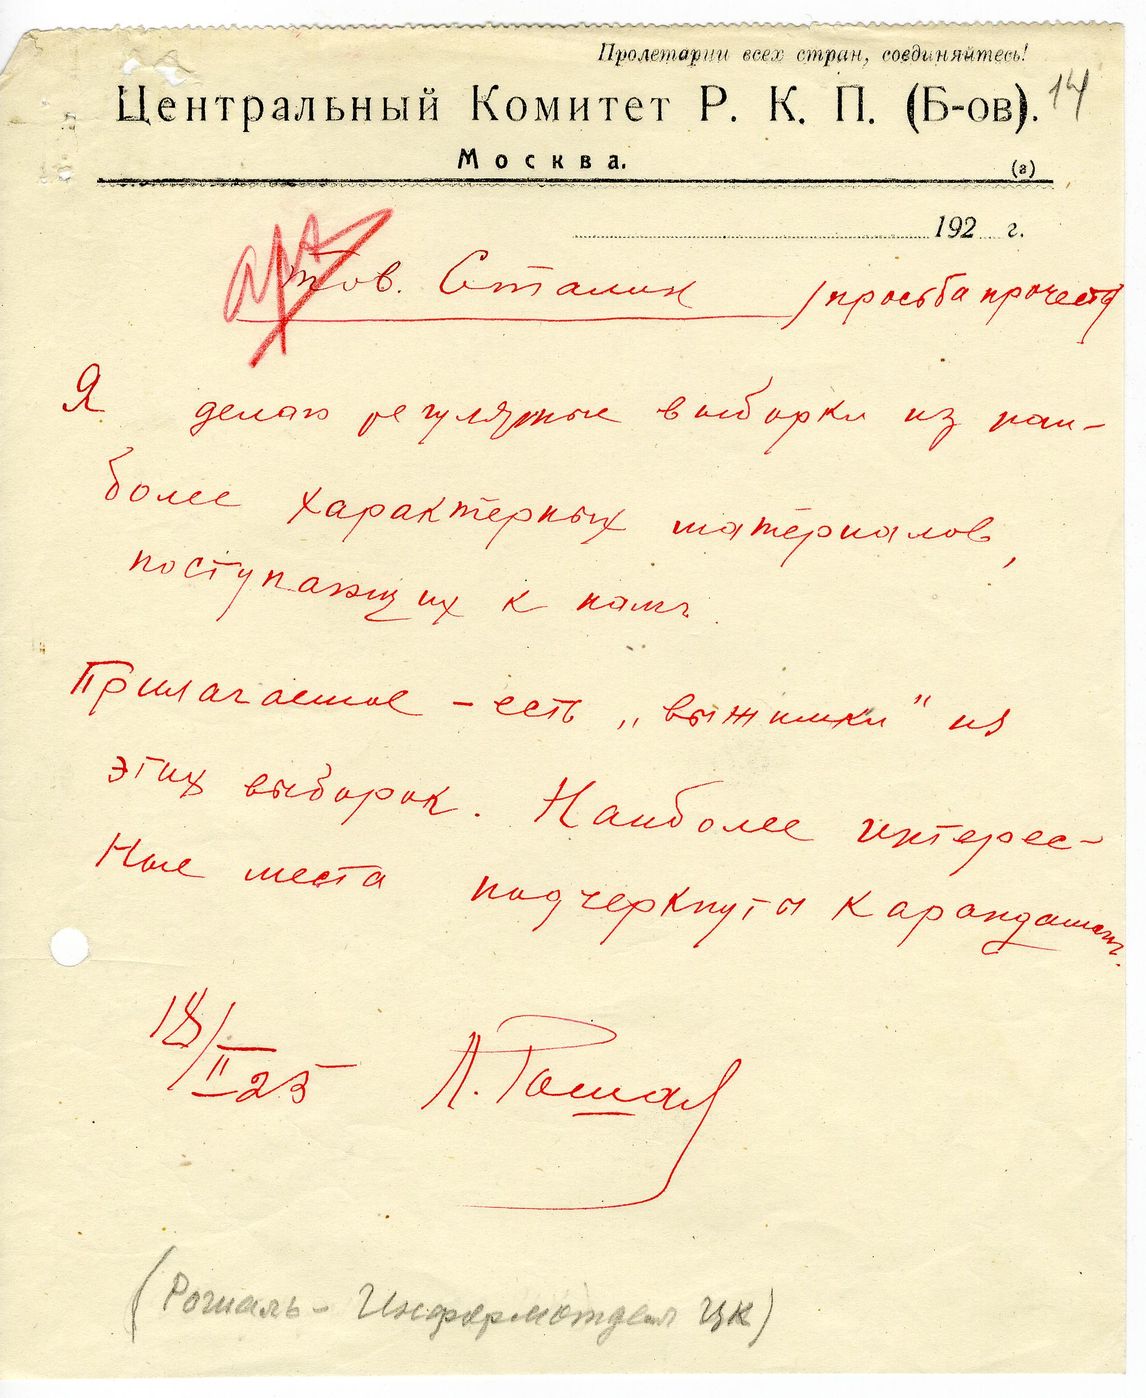 Пролетарии всех стран, соединяйтесь!
Центральный Комитет Р. К. П. (Б-ов). 14
Москва.
(а)
192 г.
тов. Сталин /просьба прочесть/
Я делаю регулярные выборки из наи-
более характерных материалов,
поступающих к нам.
Прилагаемое – есть „выжимки“ из
этих выборок. Наиболее интерес-
ные места подчеркнуты карандашом.
18/II 25
(Рогналь – Информотдел ЦК)